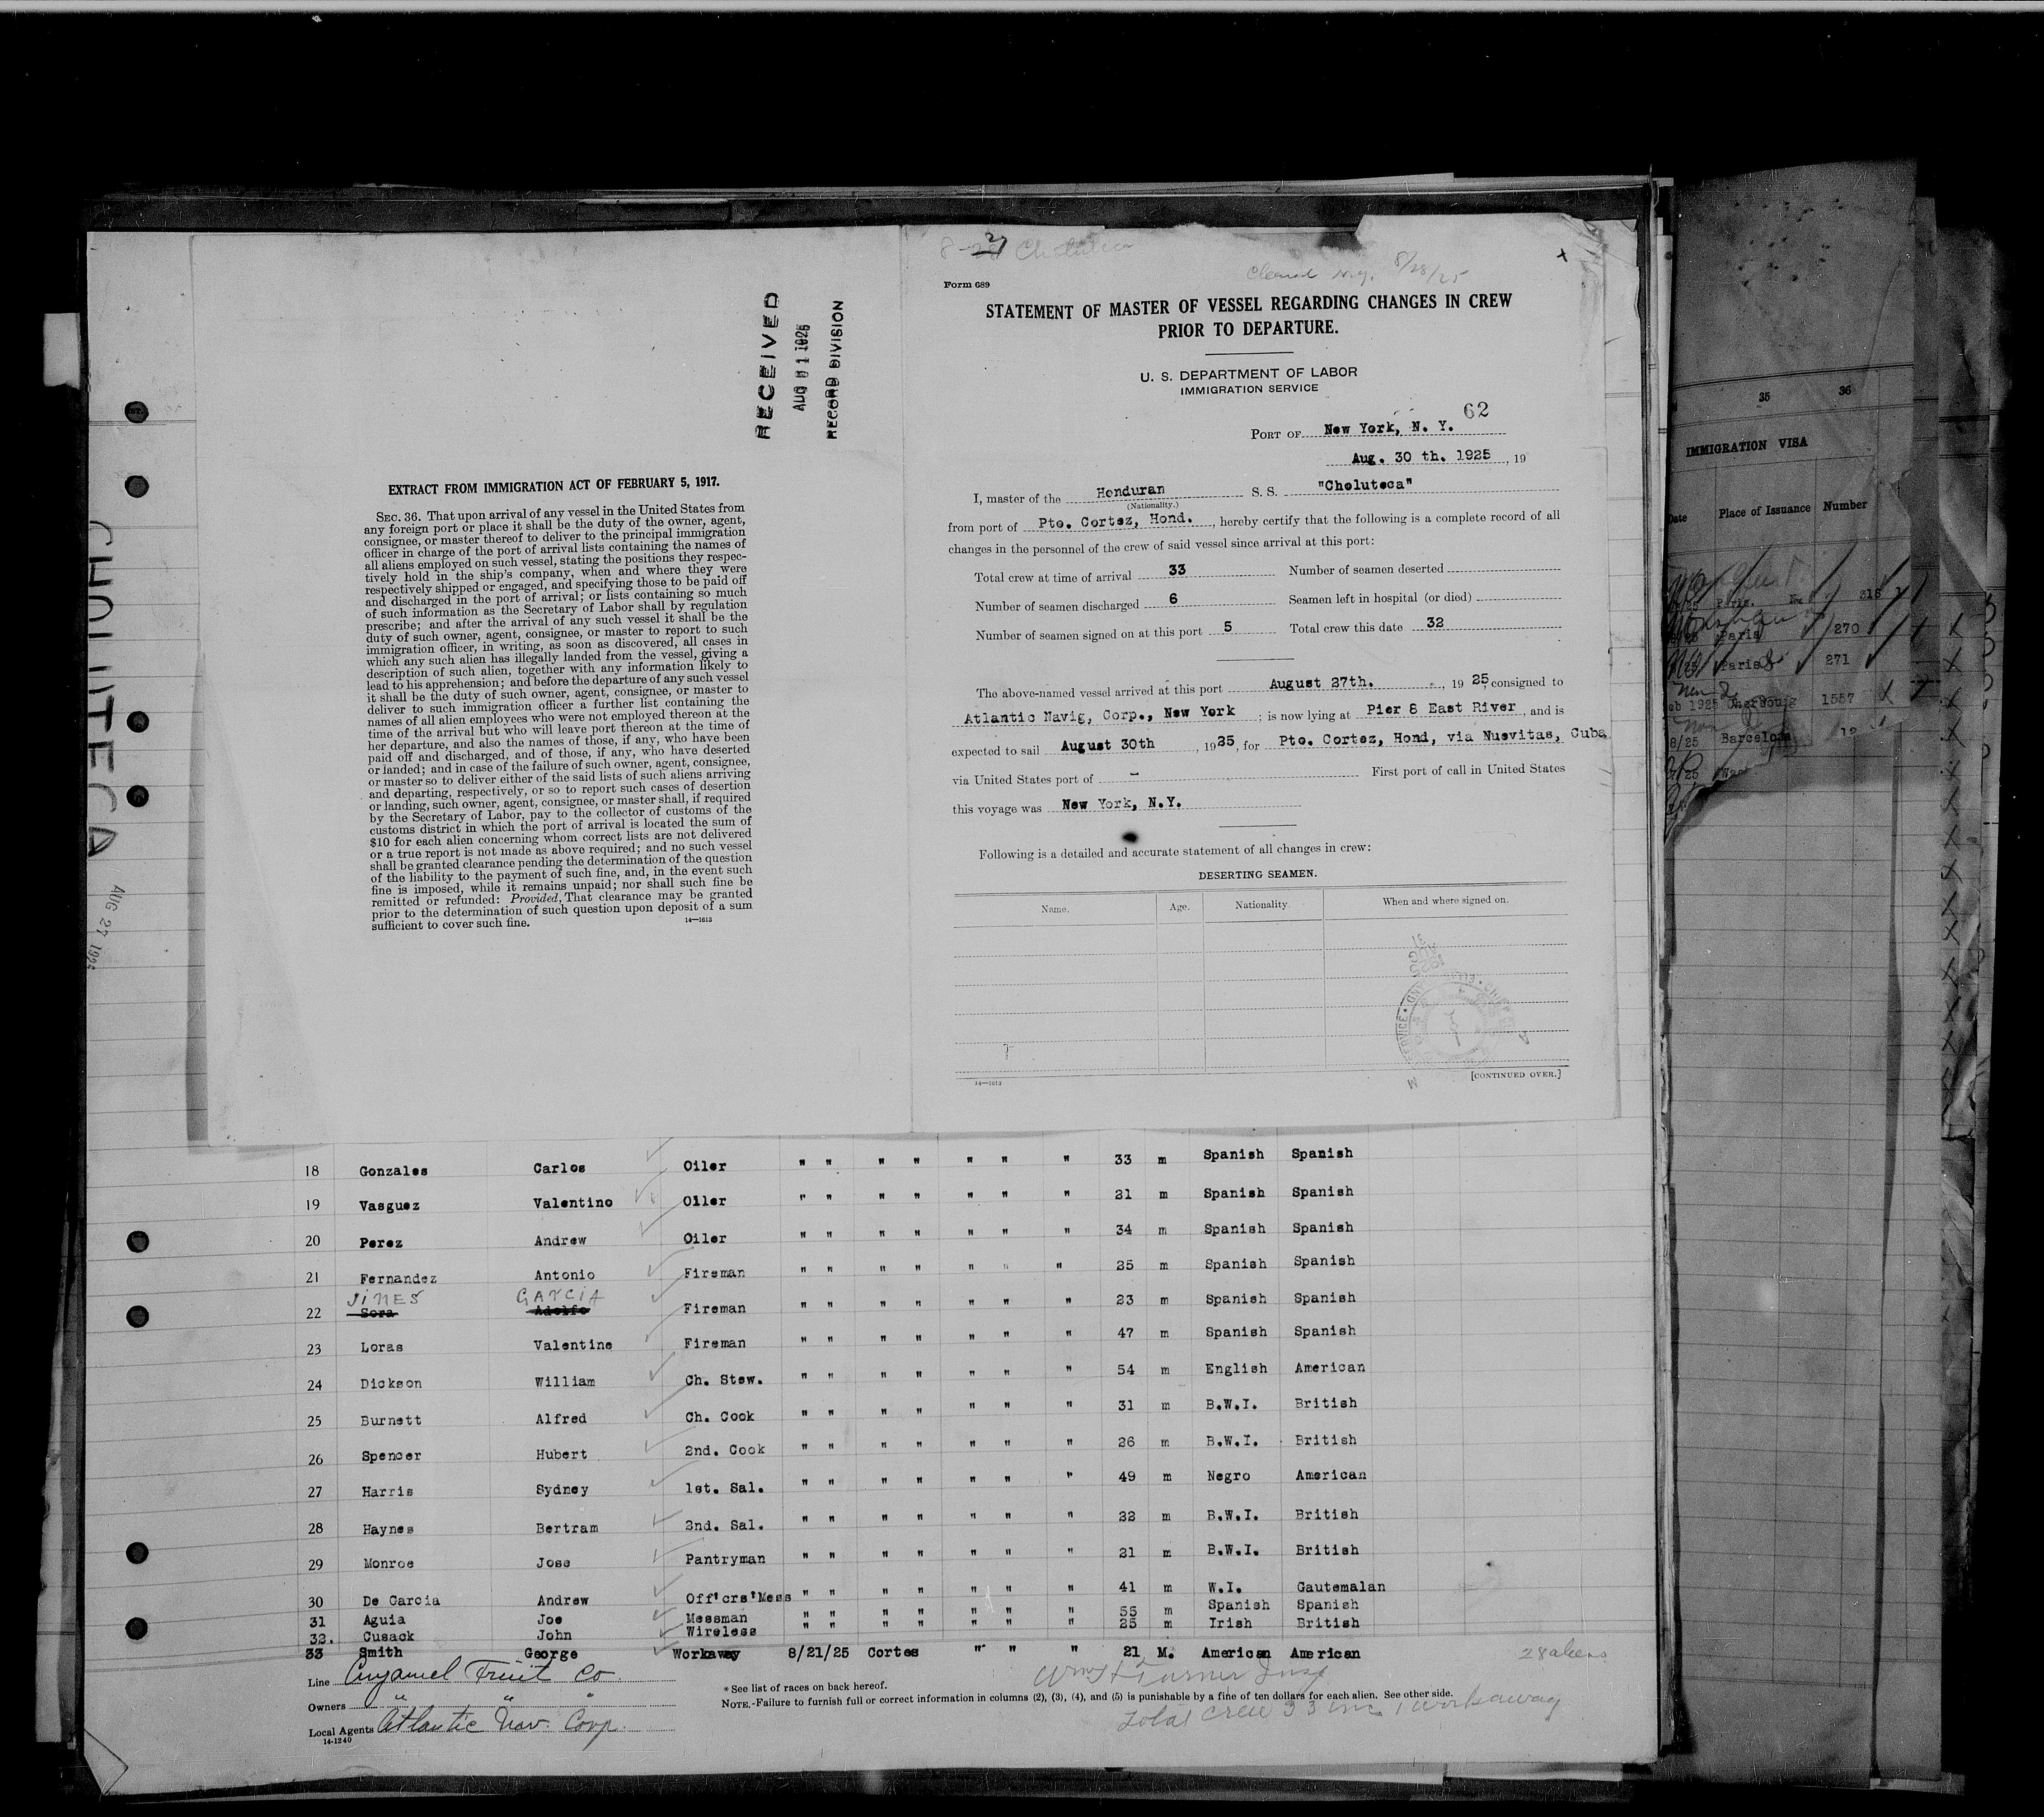 CHOLUTECA
AUG 27 1925
RECEIVED
RECORD DIVISION
EXTRACT FROM IMMIGRATION ACT OF FEBRUARY 5, 1917.
SEC. 36. That upon arrival of any vessel in the United States from
any foreign port or place it shall be the duty of the owner, agent,
consignee, or master thereof to deliver to the principal immigration
officer in charge of the port of arrival lists containing the names of
all aliens employed on such vessel, stating the positions they respec-
tively hold in the ship's company, when and where they were
respectively shipped or engaged, and specifying those to be paid off
and discharged in the port of arrival; or lists containing so much
of such information as the Secretary of Labor shall by regulation
prescribe; and after the arrival of any such vessel it shall be the
duty of such owner, agent, consignee, or master to report to such
immigration officer, in writing, as soon as discovered, all cases in
which any such alien has illegally landed from the vessel, giving a
description of such alien, together with any information likely to
lead to his apprehension; and before the departure of any such vessel
it shall be the duty of such owner, agent, consignee, or master to
deliver to such immigration officer a further list containing the
names of all alien employees who were not employed thereon at the
time of the arrival but who will leave port thereon at the time of
her departure, and also the names of those, if any, who have been
paid off and discharged, and of those, if any, who have deserted
or landed; and in case of the failure of such owner, agent, consignee,
or master so to deliver either of the said lists of such aliens arriving
and departing, respectively, or so to report such cases of desertion
or landing, such owner, agent, consignee, or master shall, if required
by the Secretary of Labor, pay to the collector of customs of the
customs district in which the port of arrival is located the sum of
$10 for each alien concerning whom correct lists are not delivered
or a true report is not made as above required; and no such vessel
shall be granted clearance pending the determination of the question
of the liability to the payment of such fine, and, in the event such
fine is imposed, while it remains unpaid; nor shall such fine be
remitted or refunded: Provided, That clearance may be granted
prior to the determination of such question upon deposit of a sum
sufficient to cover such fine. 14—1613
Choluteca
8/28/25
Form 689
STATEMENT OF MASTER OF VESSEL REGARDING CHANGES IN CREW
PRIOR TO DEPARTURE.
U. S. DEPARTMENT OF LABOR
IMMIGRATION SERVICE
62
PORT OF New York, N. Y.
Aug. 30 th. 1925, 19
I, master of the Honduran S. S. "Choluteca"
(Nationality.)
from port of Pto. Cortez, Hond., hereby certify that the following is a complete record of all
changes in the personnel of the crew of said vessel since arrival at this port:
Total crew at time of arrival 33 Number of seamen deserted
Number of seamen discharged 6 Seamen left in hospital (or died)
Number of seamen signed on at this port 5 Total crew this date 32
The above-named vessel arrived at this port August 27th., 1925, consigned to
Atlantic Navig, Corp., New York; is now lying at Pier 8 East River, and is
expected to sail August 30th, 1925, for Pto. Cortez, Hond, via Nuevitas, Cuba
via United States port of – First port of call in United States
this voyage was New York, N.Y.
Following is a detailed and accurate statement of all changes in crew:
DESERTING SEAMEN.
Name. Age. Nationality. When and where signed on.
14—1613 [CONTINUED OVER.]
18 Gonzales Carlos Oiler " " " " " " " 33 m Spanish Spanish
19 Vasguez Valentino Oiler " " " " " " " 21 m Spanish Spanish
20 Perez Andrew Oiler " " " " " " " 34 m Spanish Spanish
21 Fernandez Antonio Fireman " " " " " " " 25 m Spanish Spanish
JINES GARCIA
22 Sora Adolfo Fireman " " " " " " " 23 m Spanish Spanish
23 Loras Valentine Fireman " " " " " " " 47 m Spanish Spanish
24 Dickson William Ch. Stew. " " " " " " " 54 m English American
25 Burnett Alfred Ch. Cook " " " " " " " 31 m B.W.I. British
26 Spencer Hubert 2nd. Cook " " " " " " " 26 m B.W.I. British
27 Harris Sydney 1st. Sal. " " " " " " " 49 m Negro American
28 Haynes Bertram 2nd. Sal. " " " " " " " 22 m B.W.I. British
29 Monroe Jose Pantryman " " " " " " " 21 m B.W.I. British
30 De Garcia Andrew Off'crs'Mess " " " " " " " 41 m W.I. Gautemalan
31 Aguia Joe Messman " " " " " " " 55 m Spanish Spanish
32. Cusack John Wireless " " " " " " " 25 m Irish British
33 Smith George Workaway 8/21/25 Cortes " " " 21 M. American American
28 aliens
Line Cuyamel Fruit Co.
Owners " " "
Local Agents Atlantic Nav. Corp.
14-1240
* See list of races on back hereof.
NOTE.-Failure to furnish full or correct information in columns (2), (3), (4), and (5) is punishable by a fine of ten dollars for each alien. See other side.
Total crew 33 inc 1 workaway
35 36
IMMIGRATION VISA
Date Place of Issuance Number
Paris. 315
Paris 270
Paris 271
1925 Cherbourg 1557
8/25 Barcelona